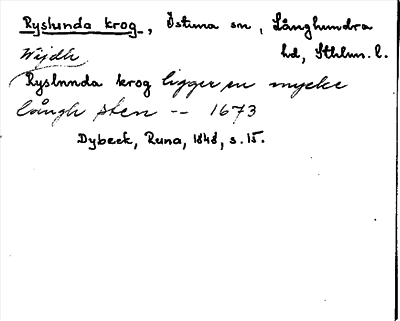 Ryslunda krog, Östuna sn, Långhundra
hd, Sthlm. l.
Wijdh
Ryslnnda krog ligger en mycke
långh sten -- 1673
Dybeck, Runa, 1848, s. 15.